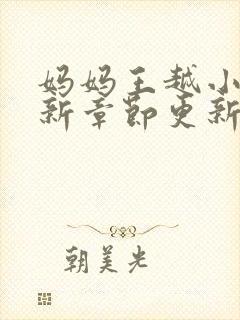 妈妈王越小
新章节更新
朝美光